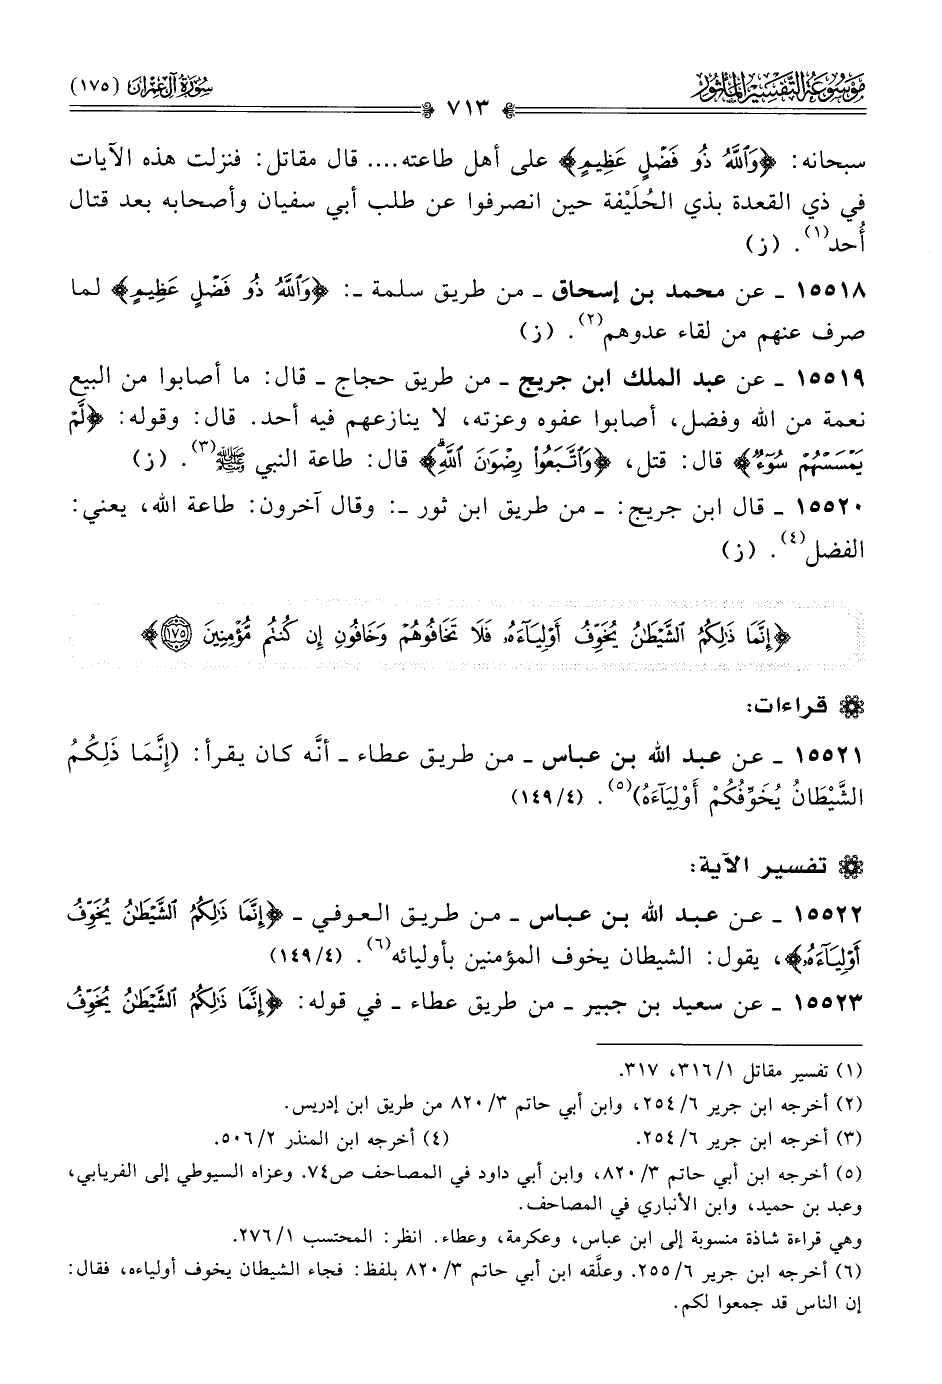 موسوعة التفسير المأثور
سورة آل عمران (١٧٥)
٧١٣
سبحانه: ﴿وَٱللَّهُ ذُو فَضْلٍ عَظِيمٍ﴾ على أهل طاعته.... قال مقاتل: فنزلت هذه الآيات
في ذي القعدة بذي الحُلَيْفة حين انصرفوا عن طلب أبي سفيان وأصحابه بعد قتال
أُحد(١). (ز)
١٥٥١٨ ـ عن محمد بن إسحاق ـ من طريق سلمة ـ: ﴿وَٱللَّهُ ذُو فَضْلٍ عَظِيمٍ﴾ لما
صرف عنهم من لقاء عدوهم(٢). (ز)
١٥٥١٩ ـ عن عبد الملك ابن جريج ـ من طريق حجاج ـ قال: ما أصابوا من البيع
نعمة من الله وفضل، أصابوا عفوه وعزته، لا ينازعهم فيه أحد. قال: وقوله: ﴿لَّمْ
يَمْسَسْهُمْ سُوٓءٌ﴾ قال: قتل، ﴿وَٱتَّبَعُوا۟ رِضْوَٰنَ ٱللَّهِ﴾ قال: طاعة النبي ﷺ(٣). (ز)
١٥٥٢٠ ـ قال ابن جريج: ـ من طريق ابن ثور ـ: وقال آخرون: طاعة الله، يعني:
الفضل(٤). (ز)
﴿إِنَّمَا ذَٰلِكُمُ ٱلشَّيْطَٰنُ يُخَوِّفُ أَوْلِيَآءَهُۥ فَلَا تَخَافُوهُمْ وَخَافُونِ إِن كُنتُم مُّؤْمِنِينَ ١٧٥﴾
قراءات:
١٥٥٢١ ـ عن عبد الله بن عباس ـ من طريق عطاء ـ أنَّه كان يقرأ: (إِنَّمَا ذَلِكُمُ
الشَّيْطَانُ يُخَوِّفُكُمْ أَوْلِيَآءَهُ)(٥). (٤/ ١٤٩)
تفسير الآية:
١٥٥٢٢ ـ عن عبد الله بن عباس ـ من طريق العوفي ـ ﴿إِنَّمَا ذَٰلِكُمُ ٱلشَّيْطَٰنُ يُخَوِّفُ
أَوْلِيَآءَهُۥ﴾، يقول: الشيطان يخوف المؤمنين بأوليائه(٦). (٤/ ١٤٩)
١٥٥٢٣ ـ عن سعيد بن جبير ـ من طريق عطاء ـ في قوله: ﴿إِنَّمَا ذَٰلِكُمُ ٱلشَّيْطَٰنُ يُخَوِّفُ
(١) تفسير مقاتل ١/ ٣١٦، ٣١٧.
(٢) أخرجه ابن جرير ٦/ ٢٥٤، وابن أبي حاتم ٣/ ٨٢٠ من طريق ابن إدريس.
(٣) أخرجه ابن جرير ٦/ ٢٥٤. (٤) أخرجه ابن المنذر ٢/ ٥٠٦.
(٥) أخرجه ابن أبي حاتم ٣/ ٨٢٠، وابن أبي داود في المصاحف ص٧٤. وعزاه السيوطي إلى الفريابي،
وعبد بن حميد، وابن الأنباري في المصاحف.
وهي قراءة شاذة منسوبة إلى ابن عباس، وعكرمة، وعطاء. انظر: المحتسب ١/ ٢٧٦.
(٦) أخرجه ابن جرير ٦/ ٢٥٥. وعلَّقه ابن أبي حاتم ٣/ ٨٢٠ بلفظ: فجاء الشيطان يخوف أولياءه، فقال:
إن الناس قد جمعوا لكم.